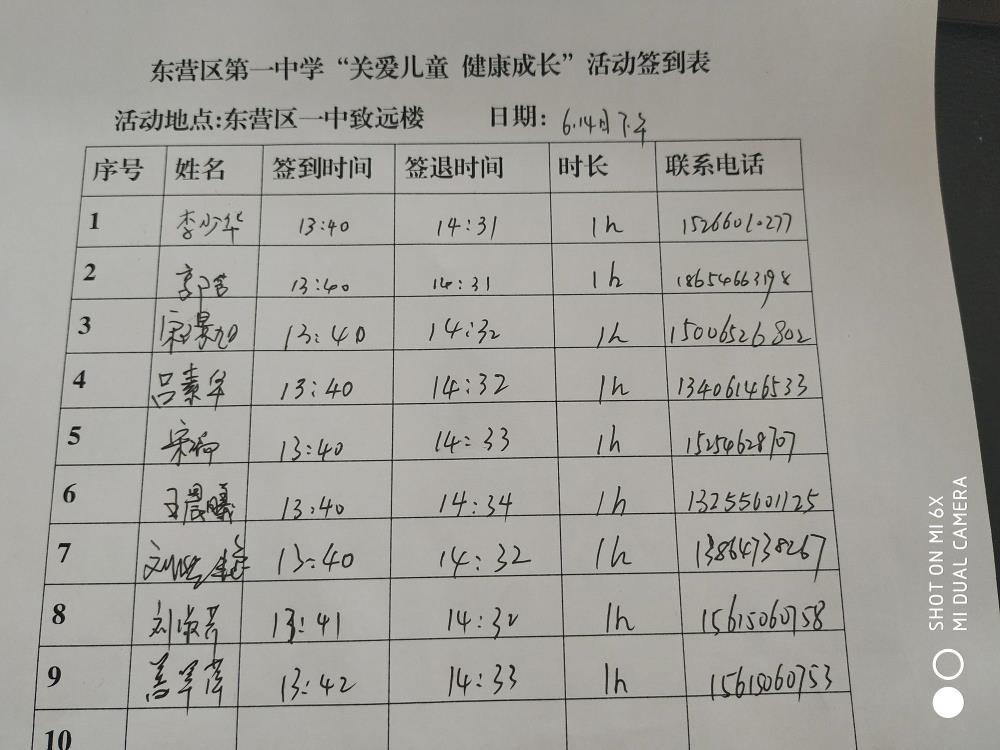 东营区第一中学“关爱儿童 健康成长”活动签到表
活动地点:东营区一中致远楼 日期: 6.14日下午
序号 姓名 签到时间 签退时间 时长 联系电话
1 李少华 13:40 14:31 1h 15266010277
2 13:40 14:31 1h 18654663198
3 13:40 14:32 1h 15006526802
4 吕素华 13:40 14:32 1h 13406146533
5 宋柳 13:40 14:33 1h 15254628707
6 王晨曦 13:40 14:34 1h 13255601125
7 13:40 14:32 1h 13864738267
8 刘淑芳 13:41 14:32 1h 15615060758
9 13:42 14:33 1h 15615060753
10
SHOT ON MI 6X
MI DUAL CAMERA